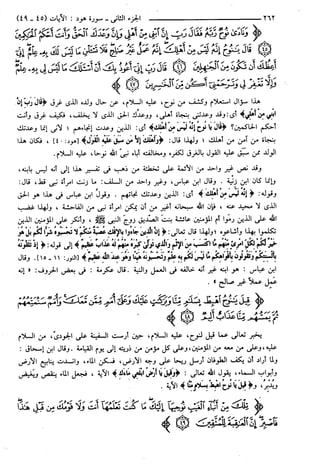 ٢٦٢ الجزء الثانى ـ سورة هود : الآيات (٤٥ ـ ٤٩)
وَنَادَىٰ نُوحٌ رَّبَّهُ فَقَالَ رَبِّ إِنَّ ابْنِي مِنْ أَهْلِي وَإِنَّ وَعْدَكَ الْحَقُّ وَأَنتَ أَحْكَمُ الْحَاكِمِينَ
قَالَ يَا نُوحُ إِنَّهُ لَيْسَ مِنْ أَهْلِكَ إِنَّهُ عَمَلٌ غَيْرُ صَالِحٍ فَلَا تَسْأَلْنِ مَا لَيْسَ لَكَ بِهِ عِلْمٌ إِنِّي
أَعِظُكَ أَن تَكُونَ مِنَ الْجَاهِلِينَ قَالَ رَبِّ إِنِّي أَعُوذُ بِكَ أَنْ أَسْأَلَكَ مَا لَيْسَ لِي بِهِ عِلْمٌ
وَإِلَّا تَغْفِرْ لِي وَتَرْحَمْنِي أَكُن مِّنَ الْخَاسِرِينَ
هذا سؤال استعلام وكشف من نوح، عليه السلام، عن حال ولده الذى غرق ﴿فَقَالَ رَبِّ إِنَّ
ابْنِي مِنْ أَهْلِي﴾ أى: وقد وعدتنى بنجاة أهلى، ووعدك الحق الذى لا يخلف، فكيف غرق وأنت
أحكم الحاكمين؟ ﴿قَالَ يَا نُوحُ إِنَّهُ لَيْسَ مِنْ أَهْلِكَ﴾ أى: الذين وعدت إنجاءهم ؛ لأنى إنما وعدتك
بنجاة من آمن من أهلك ؛ ولهذا قال: ﴿وَأَهْلَكَ إِلَّا مَن سَبَقَ عَلَيْهِ الْقَوْلُ﴾ [هود: ٤٠]، فكان هذا
الولد ممن سبق عليه القول بالغرق لكفره ومخالفته أباه نبىّ الله نوحا، عليه السلام.
وقد نص غير واحد من الأئمة على تخطئة من ذهب فى تفسير هذا إلى أنه ليس بابنه،
وإنما كان ابن زنية . وقال ابن عباس، وغير واحد من السلف: ما زنت امرأة نبى قط، قال:
وقوله: ﴿إِنَّهُ لَيْسَ مِنْ أَهْلِكَ﴾ أى: الذين وعدتك نجاتهم . وقول ابن عباس فى هذا هو الحق
الذى لا محيد عنه ، فإن الله سبحانه أغير من أن يمكن امرأة نبى من الفاحشة ، ولهذا غضب
الله على الذين رموا أم المؤمنين عائشة بنت الصديق زوج النبى ﷺ ، وأنكر على المؤمنين الذين
تكلموا بهذا وأشاعوه ؛ ولهذا قال تعالى: ﴿إِنَّ الَّذِينَ جَاءُوا بِالْإِفْكِ عُصْبَةٌ مِّنكُمْ لَا تَحْسَبُوهُ شَرًّا لَّكُم بَلْ هُوَ
خَيْرٌ لَّكُمْ لِكُلِّ امْرِئٍ مِّنْهُم مَّا اكْتَسَبَ مِنَ الْإِثْمِ وَالَّذِي تَوَلَّىٰ كِبْرَهُ مِنْهُمْ لَهُ عَذَابٌ عَظِيمٌ﴾ إلى قوله: ﴿إِذْ تَلَقَّوْنَهُ
بِأَلْسِنَتِكُمْ وَتَقُولُونَ بِأَفْوَاهِكُم مَّا لَيْسَ لَكُم بِهِ عِلْمٌ وَتَحْسَبُونَهُ هَيِّنًا وَهُوَ عِندَ اللَّهِ عَظِيمٌ﴾ [النور: ١١ ـ ١٥]. وقال
ابن عباس : هو ابنه غير أنه خالفه فى العمل والنية . قال عكرمة : فى بعض الحروف: « إنه
عَمِلَ عملاً غير صالح » .
قِيلَ يَا نُوحُ اهْبِطْ بِسَلَامٍ مِّنَّا وَبَرَكَاتٍ عَلَيْكَ وَعَلَىٰ أُمَمٍ مِّمَّن مَّعَكَ وَأُمَمٌ سَنُمَتِّعُهُمْ
ثُمَّ يَمَسُّهُم مِّنَّا عَذَابٌ أَلِيمٌ
يخبر تعالى عما قيل لنوح، عليه السلام، حين أرست السفينة على الجودىّ، من السلام
عليه،وعلى من معه من المؤمنين،وعلى كل مؤمن من ذريته إلى يوم القيامة .وقال ابن إسحاق :
ولما أراد أن يكف الطوفان أرسل ريحا على وجه الأرض، فسكن الماء، وانسدت ينابيع الأرض
وأبواب السماء، يقول الله تعالى : ﴿وَقِيلَ يَا أَرْضُ ابْلَعِي مَاءَكِ﴾ الآية ، فجعل الماء ينقص ويغيض
ويُدْبِر، و ﴿قِيلَ يَا نُوحُ اهْبِطْ بِسَلَامٍ مِّنَّا﴾ الآية .
تِلْكَ مِنْ أَنبَاءِ الْغَيْبِ نُوحِيهَا إِلَيْكَ مَا كُنتَ تَعْلَمُهَا أَنتَ وَلَا قَوْمُكَ مِن قَبْلِ هَٰذَا
فَاصْبِرْ إِنَّ الْعَاقِبَةَ لِلْمُتَّقِينَ